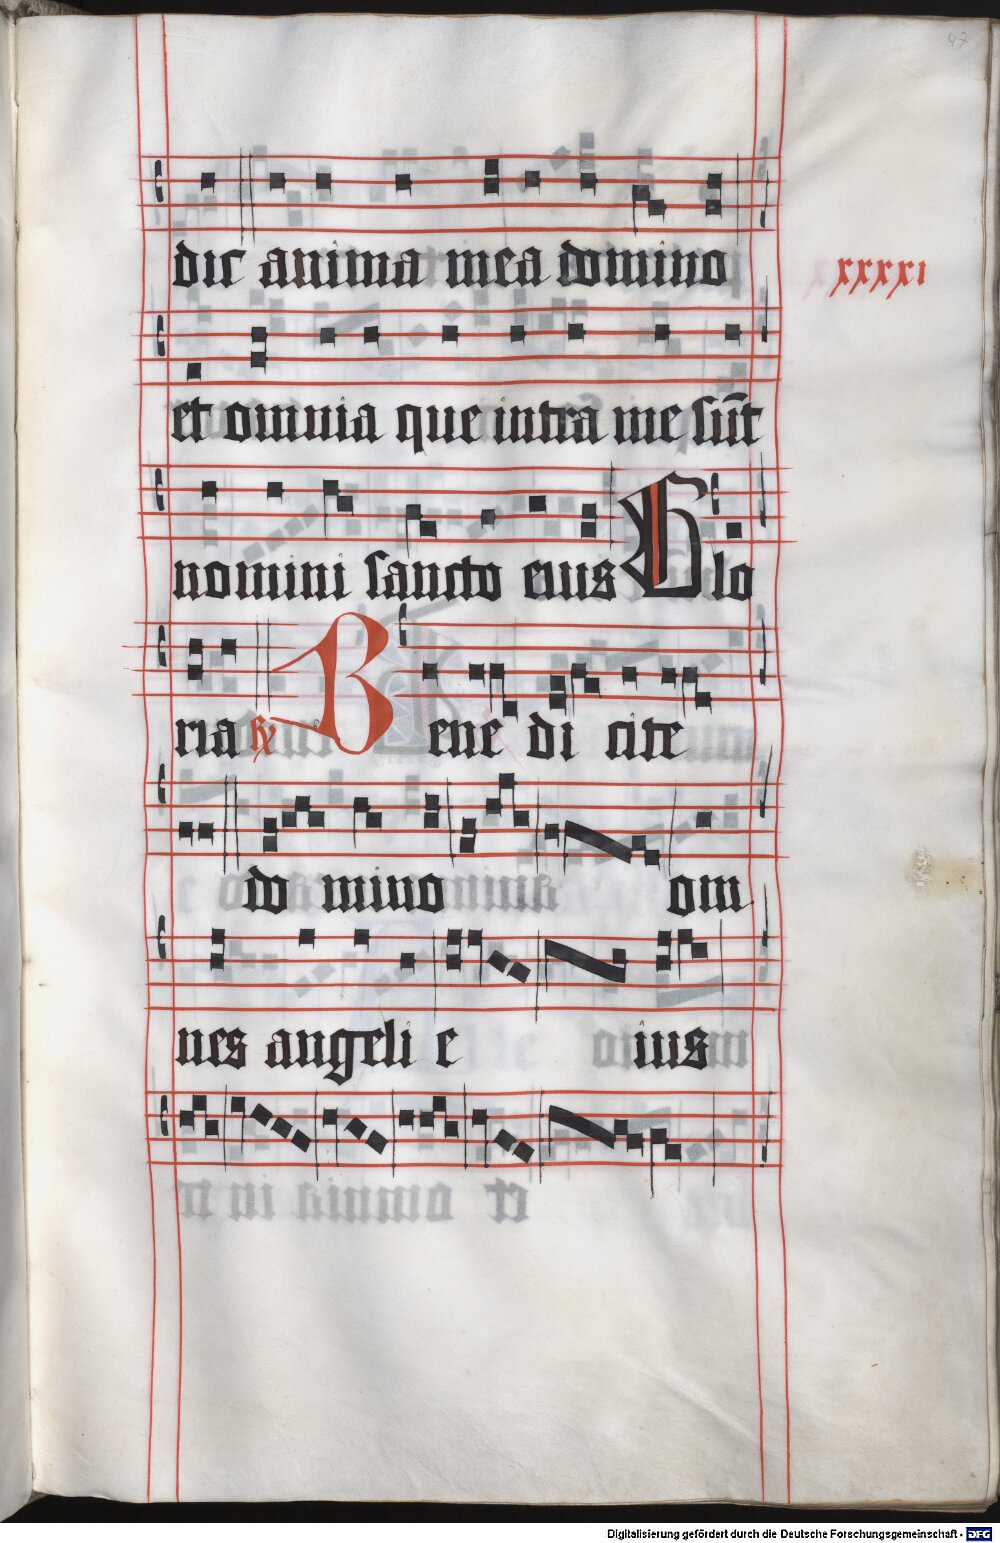 47
dic anima mea domino
xxxxxi
et omnia que intra me sūt
nomini sancto eius Glo
ria R Bene di cite
do mino om
nes angeli e ius
Digitalisierung gefördert durch die Deutsche Forschungsgemeinschaft - DFG